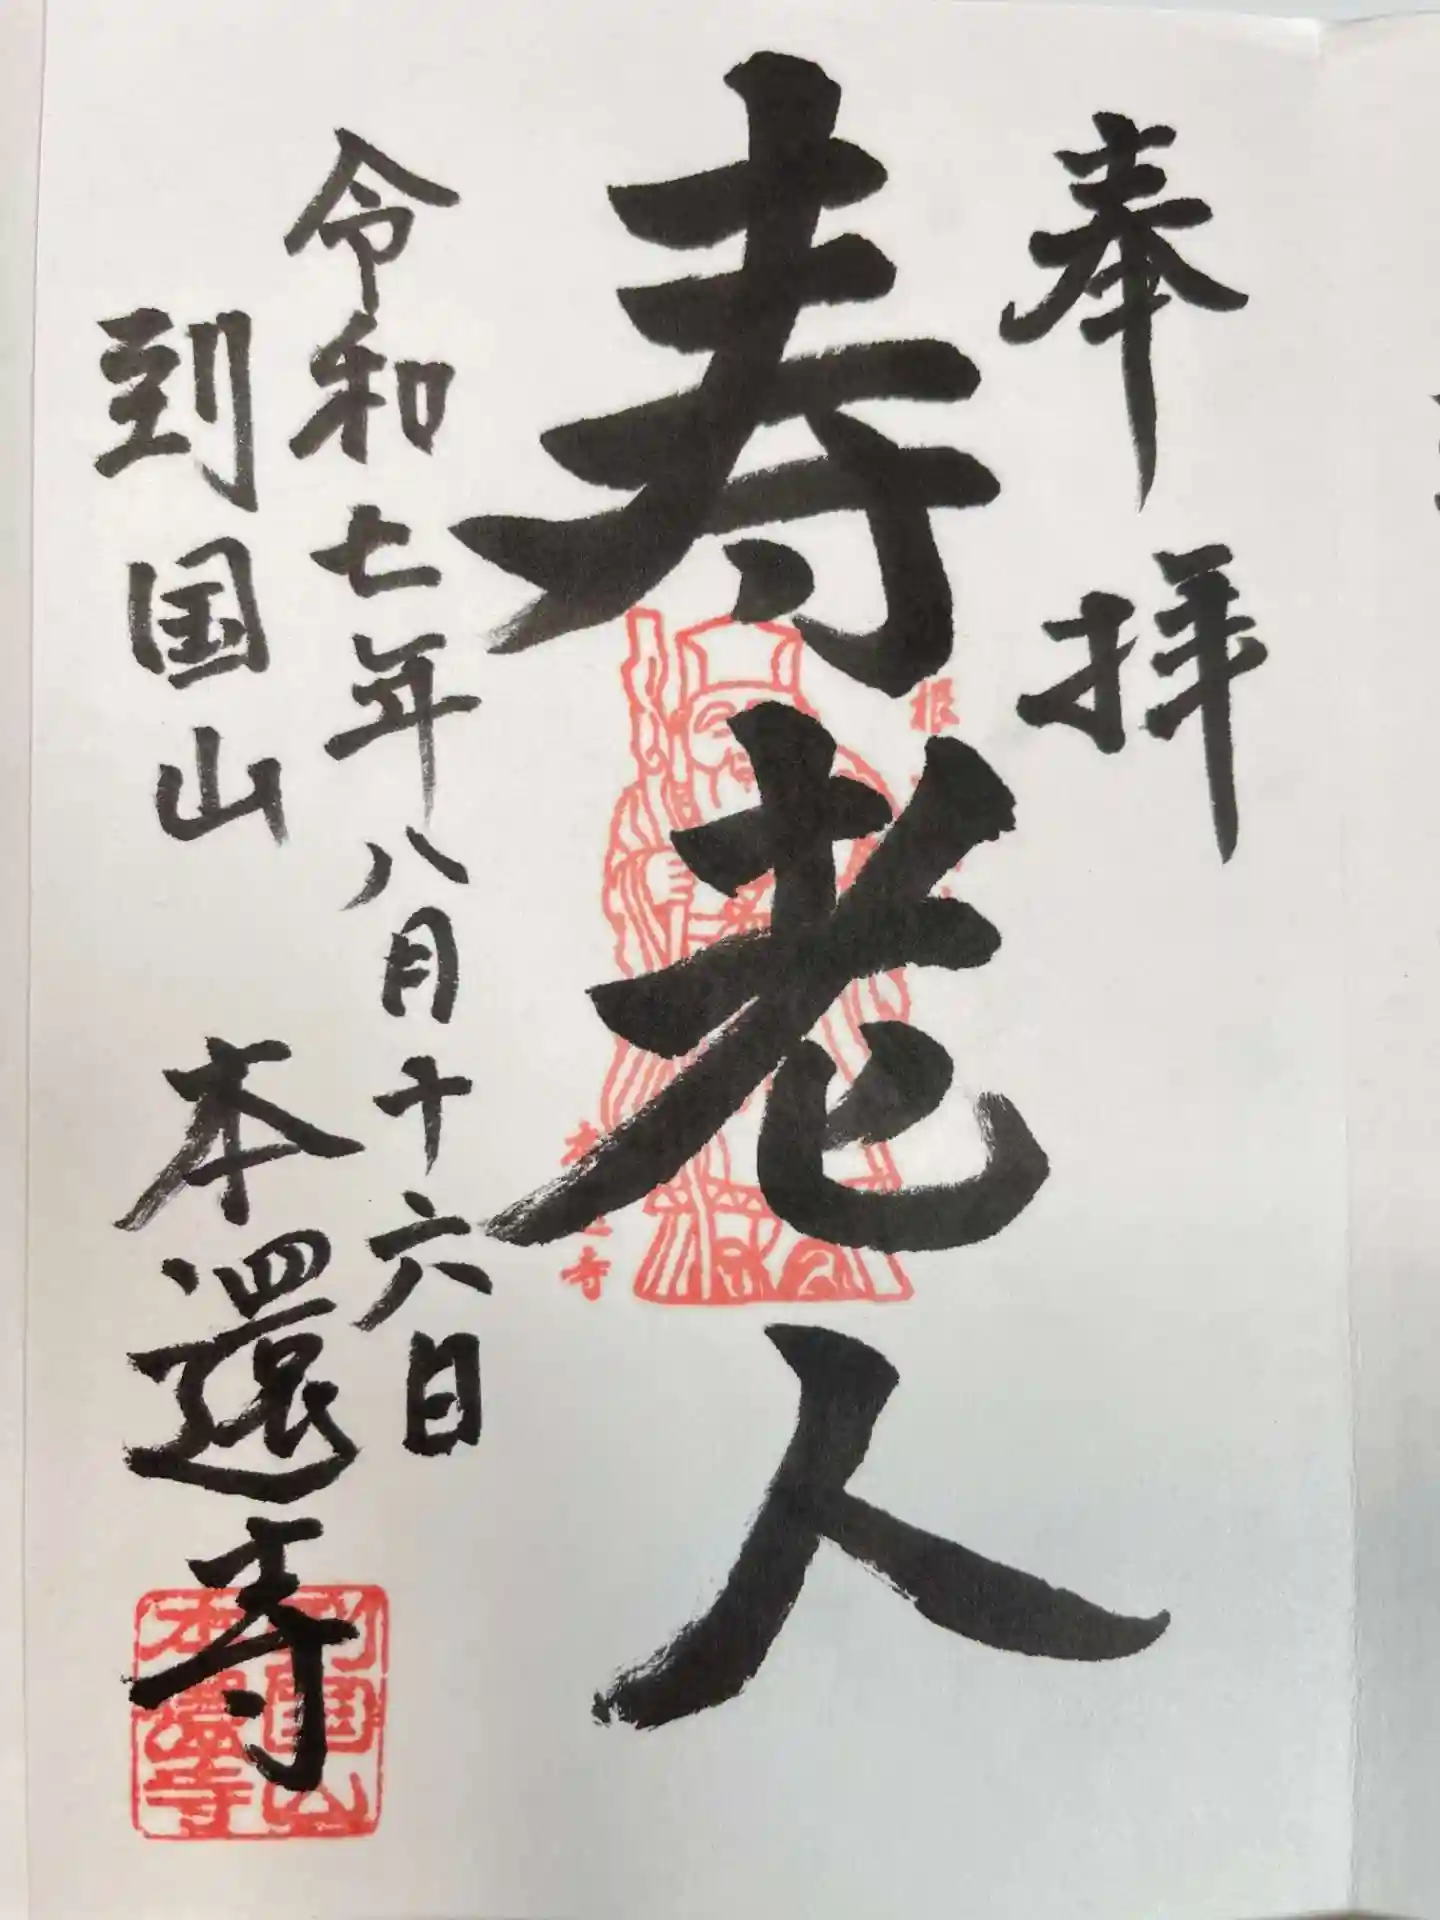 奉拝
寿老人
令和七年八月十六日
到国山 本還寺
根
本
寺
到国山
本還寺